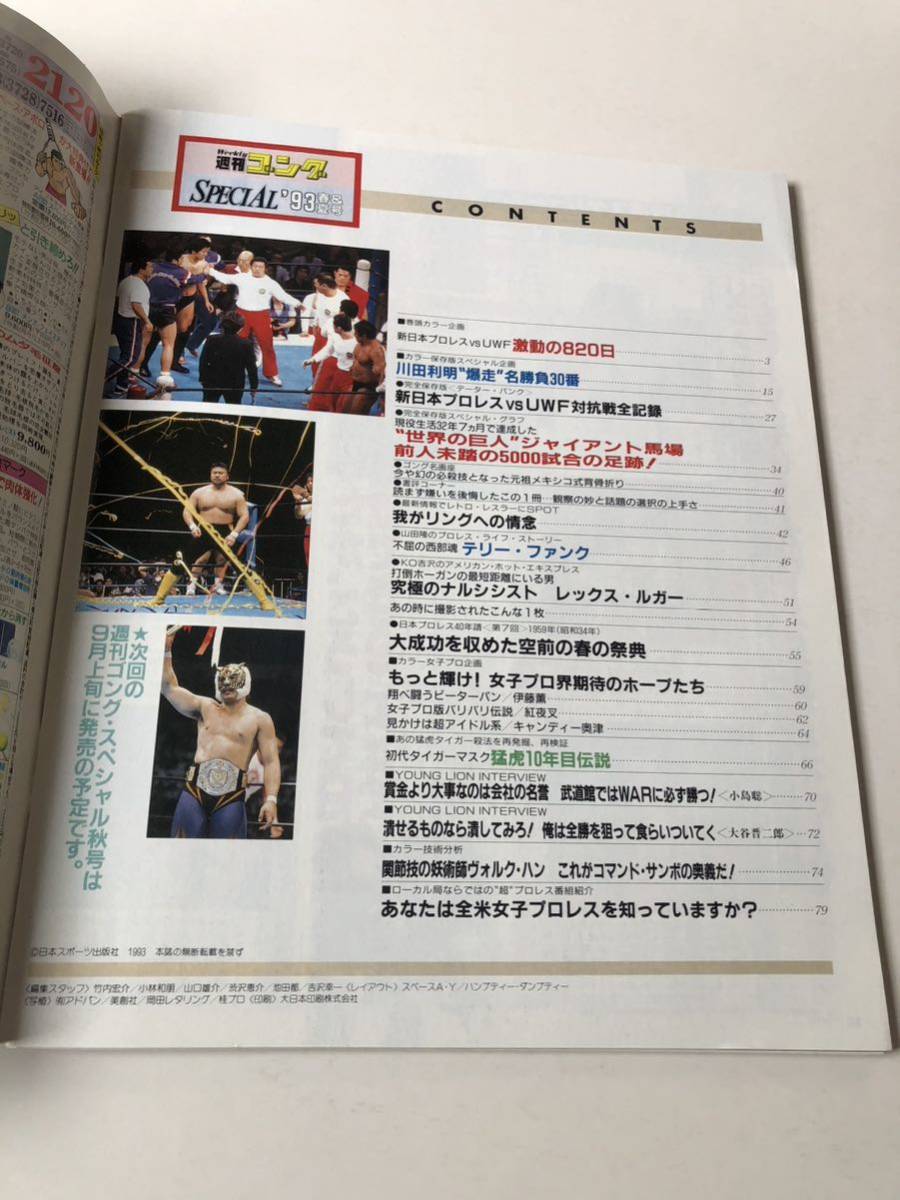 2120
3728)7516
と引き締めろ!!
9,800円
Weekly
週刊ゴング
SPECIAL '93 春夏号
CONTENTS
■巻頭カラー企画
新日本プロレスvsUWF 激動の820日 3
■カラー保存版スペシャル企画
川田利明“爆走”名勝負30番 15
●完全保存版〈データー・バンク〉
新日本プロレスvsUWF対抗戦全記録 27
●完全保存版スペシャル・グラフ
現役生活32年7ヵ月で達成した
“世界の巨人”ジャイアント馬場
前人未踏の5000試合の足跡! 34
●ゴング名画座
今や幻の必殺技となった元祖メキシコ式背骨折り 40
●書評コーナー
読まず嫌いを後悔したこの1冊…観察の妙と話題の選択の上手さ 41
●最新情報でレトロ・レスラーにSPOT
我がリングへの情念 42
●山田隆のプロレス・ライフ・ストーリー
不屈の西部魂 テリー・ファンク 46
●KO吉沢のアメリカン・ホット・エキスプレス
打倒ホーガンの最短距離にいる男
究極のナルシシスト レックス・ルガー 51
あの時に撮影されたこんな1枚 54
●日本プロレス40年譜〈第7回〉1959年(昭和34年)
大成功を収めた空前の春の祭典 55
■カラー女子プロ企画
もっと輝け! 女子プロ界期待のホープたち 59
翔べ闘うピーターパン/伊藤薫 60
女子プロ版バリバリ伝説/紅夜叉 62
見かけは超アイドル系/キャンディー奥津 64
■あの猛虎タイガー殺法を再発掘、再検証
初代タイガーマスク猛虎10年目伝説 66
■YOUNG LION INTERVIEW
賞金より大事なのは会社の名誉 武道館ではWARに必ず勝つ!〈小島聡〉 70
■YOUNG LION INTERVIEW
潰せるものなら潰してみろ! 俺は全勝を狙って食らいついてく〈大谷晋二郎〉 72
■カラー技術分析
関節技の妖術師ヴォルク・ハン これがコマンド・サンボの奥義だ! 74
■ローカル局ならではの“超”プロレス番組紹介
あなたは全米女子プロレスを知っていますか? 79
★次回の
週刊ゴング・スペシャル秋号は
9月上旬に発売の予定です。
©日本スポーツ出版社 1993 本誌の無断転載を禁ず
〈編集スタッフ〉竹内宏介/小林和朋/山口雄介/渋沢恵介/池田都/吉沢幸一〈レイアウト〉スペースA・Y/ハンプティー・ダンプティー
〈写植〉㈲アドパン/美創社/岡田レタリング/桂プロ〈印刷〉大日本印刷株式会社